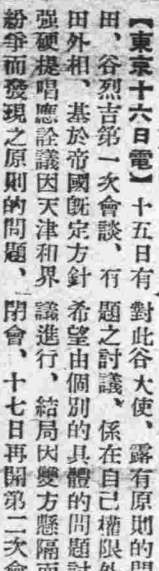 【東京十六日電】十五日有
田、谷烈吉第一次會談、有
田外相、基於帝國旣定方針
强硬提唱應詮議因天津和界
紛爭而發現之原則的問題、
對此谷大使、露有原則的問
題之討議、係在自己權限外
希望由個別的具體的問題討
議進行、結局因雙方懸隔而
閉會、十七日再開第二次會